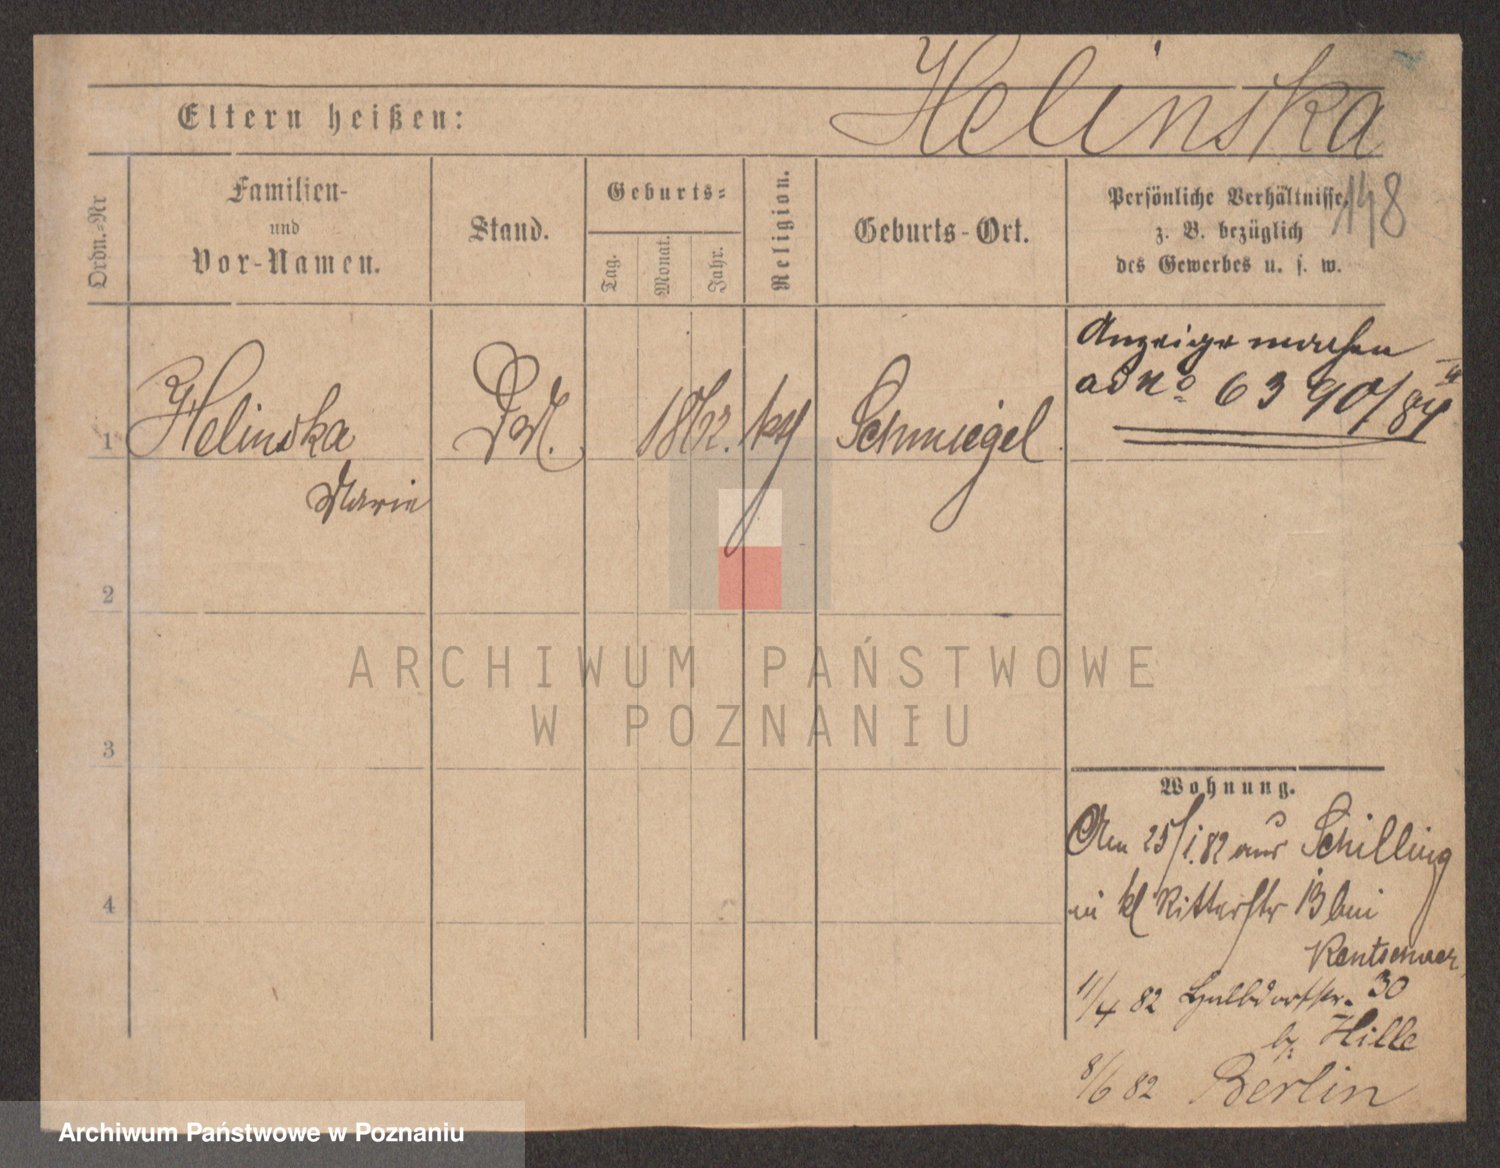 Helinska
Eltern heißen:
148
Ordn.-Nr
Familien-
und
Vor-Namen.
Stand.
Geburts-
Tag.
Monat.
Jahr.
Religion.
Geburts-Ort.
Persönliche Verhältnisse,
z. B. bezüglich
des Gewerbes u. s. w.
1
Helinska
Marie
DM.
1862.
kth
Schmiegel
Anzeige machen
ad No 6390/84
2
3
4
Wohnung.
Am 25/1.82 aus Schilling
in kl Ritterstr 13 bei
11/4 82 Halbdorfstr. 30
b. Hille
8/6 82 Berlin
ARCHIWUM PAŃSTWOWE
W POZNANIU
Archiwum Państwowe w Poznaniu